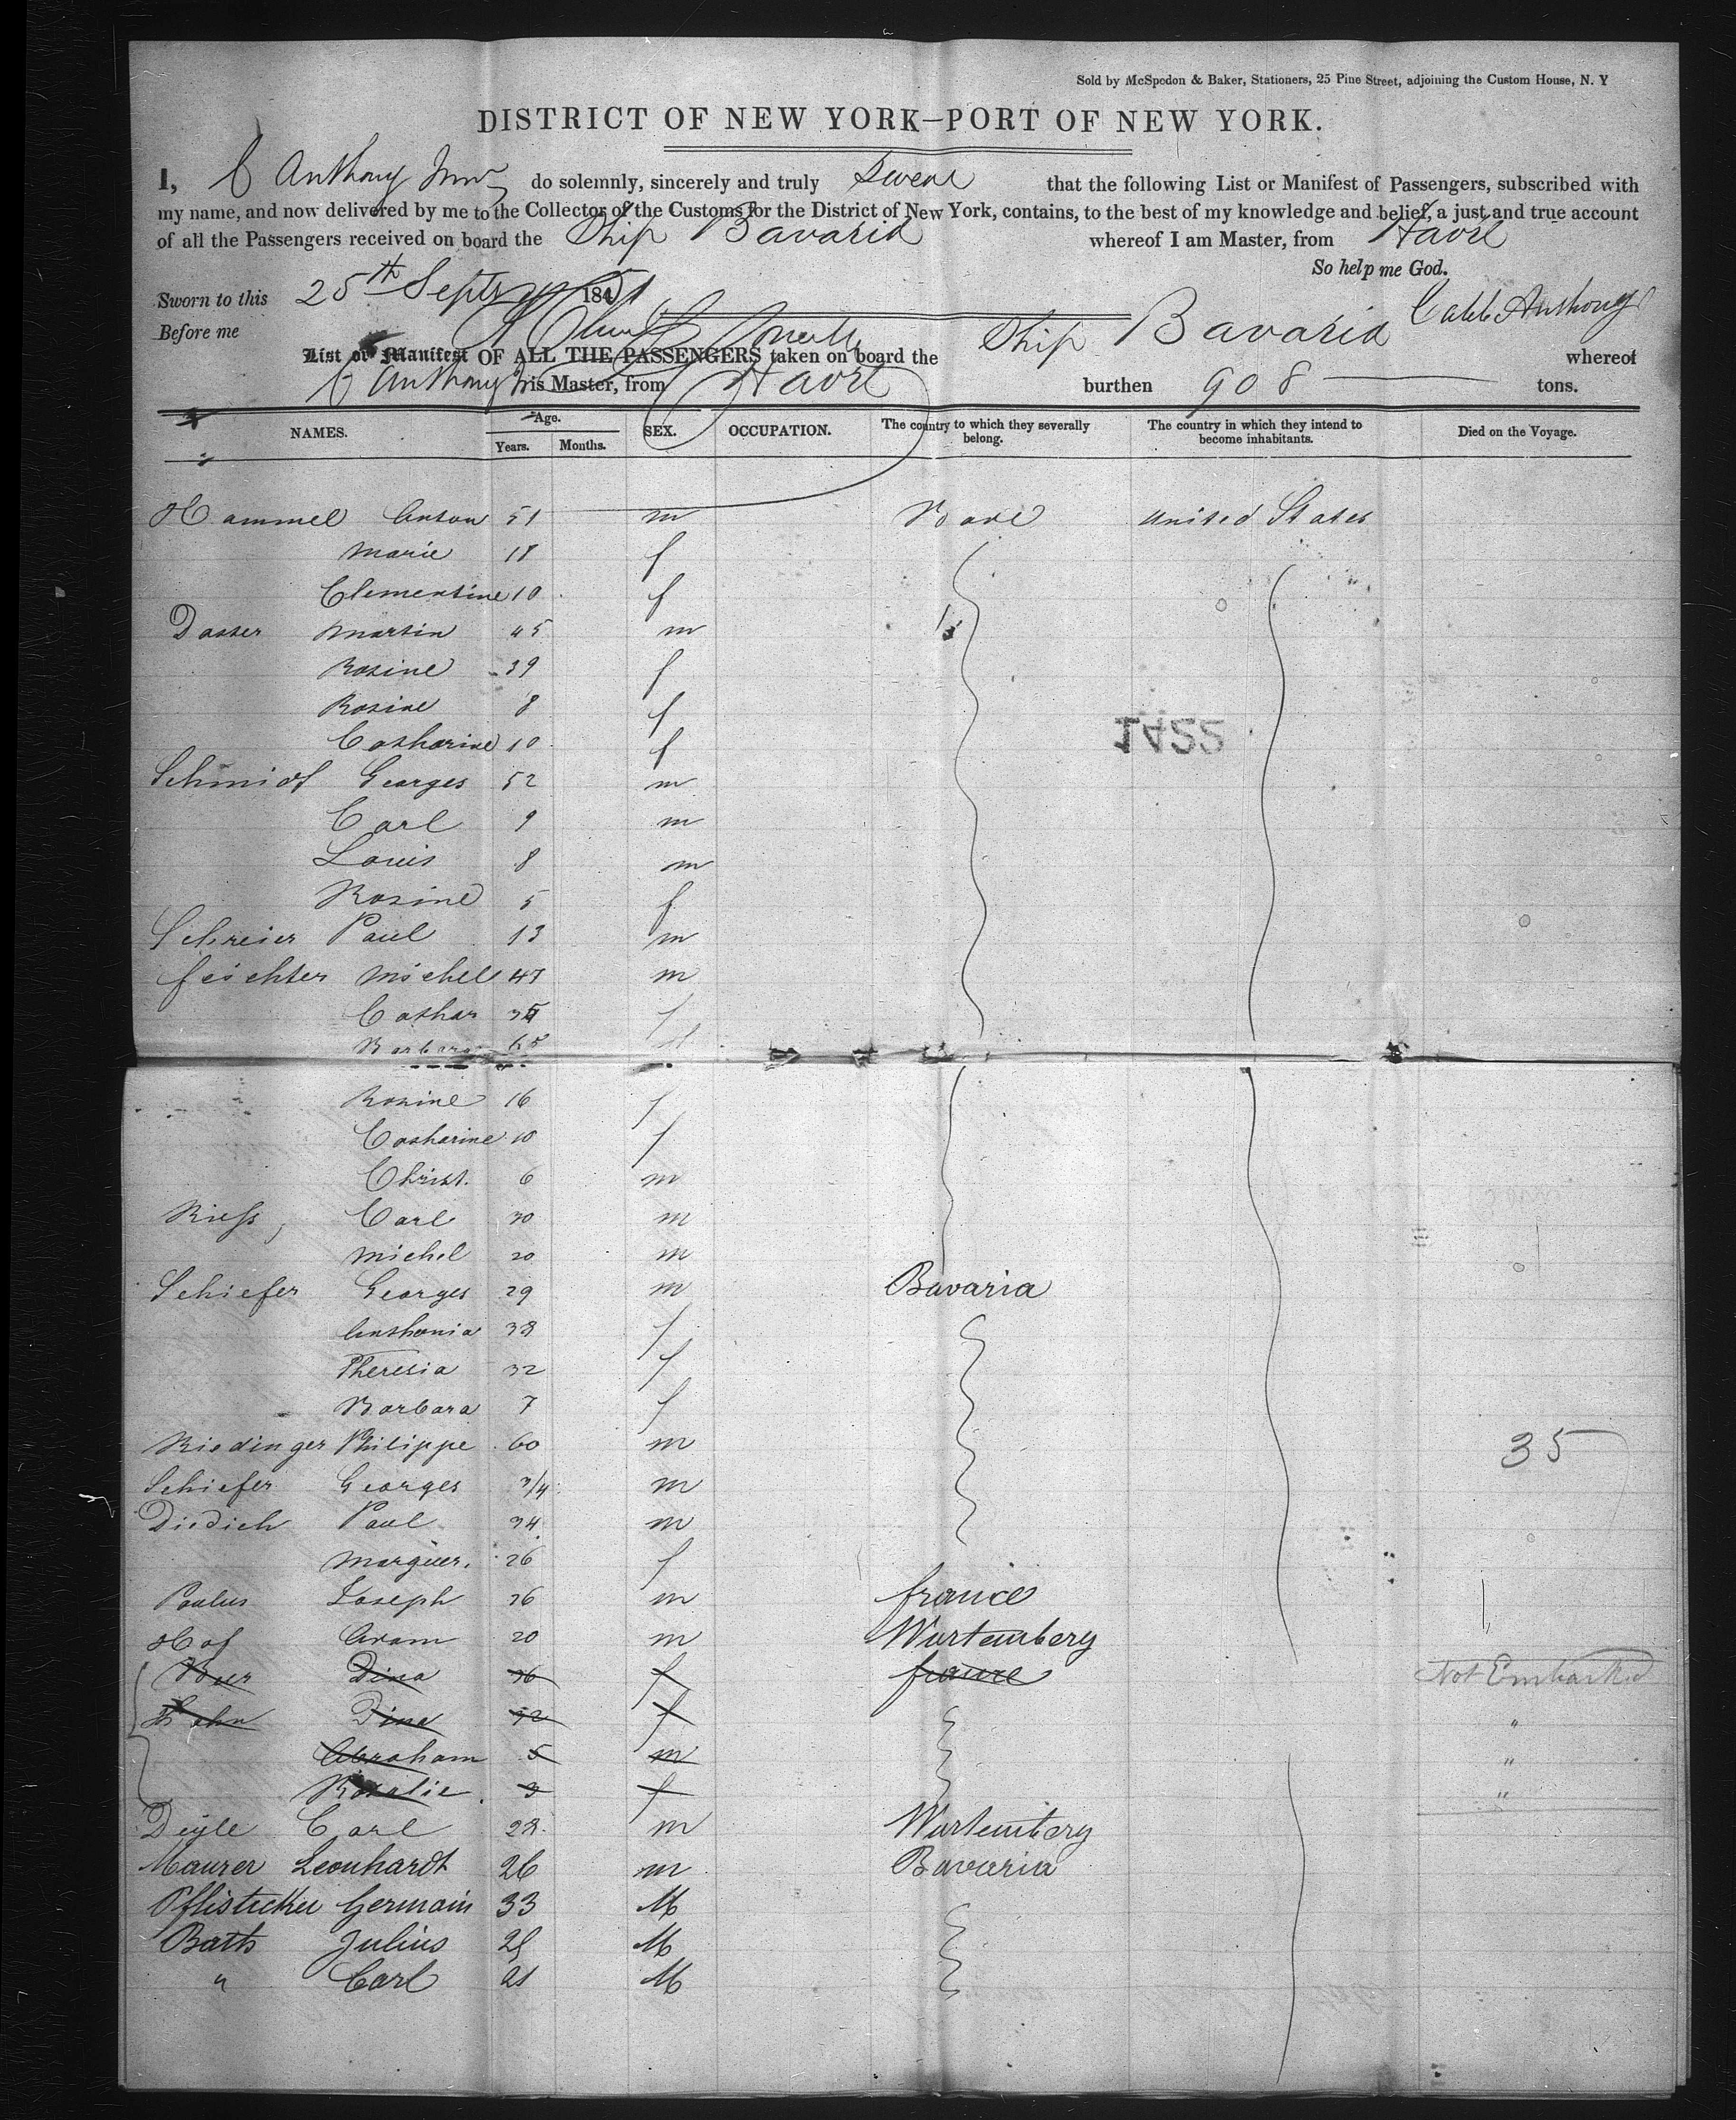 Sold by McSpedon & Baker, Stationers, 25 Pine Street, adjoining the Custom House, N. Y
DISTRICT OF NEW YORK—PORT OF NEW YORK.
I, C Anthony Junr do solemnly, sincerely and truly Swear that the following List or Manifest of Passengers, subscribed with
my name, and now delivered by me to the Collector of the Customs for the District of New York, contains, to the best of my knowledge and belief, a just and true account
of all the Passengers received on board the Ship Bavaria whereof I am Master, from Havre
So help me God.
Sworn to this 25th Septr 1851
Caleb Anthony
Before me
List or Manifest OF ALL THE PASSENGERS taken on board the Ship Bavaria whereof
C Anthony Jr is Master, from Havre burthen 908 tons.
NAMES. Age. Years. Months. SEX. OCCUPATION. The country to which they severally belong. The country in which they intend to become inhabitants. Died on the Voyage.
Hammel Anton 51 m United States
Marie 18 f
Clementine 10 f
Dasser Martin 45 m
Rosine 39 f
Rosine 8 f
Catharine 10 f
1422
Schmidt Georges 52 m
Carl 9 m
Louis 8 m
Rosine 5 f
Schreier Paul 13 m
feichter Michel 47 m
Cathar f
Barbara 65 f
Rosine 16 f
Catharine 10 f
Christ. 6 m
Riess, Carl 30 m
Michel 20 m
Schiefer Georges 29 m Bavaria
Anthonia 38 f
Theresia 32 f
Barbara 7 f
Riedinger Philippe 60 m 35
Schiefer Georges 3/4 m
Diedich Paul 34 m
Marguer. 26 f
Paulus Joseph 36 m france
Hof Aram 20 m Wurtemberg
Dina 36 f france Not Embarked
Dina 32 f "
Abraham 5 m "
Rosalie 3 f "
Deyle Carl 28 m Wurtemberg
Maurer Leonhardt 26 m Bavaria
Germain 33 M
Bath Julius 25 M
" Carl 21 M